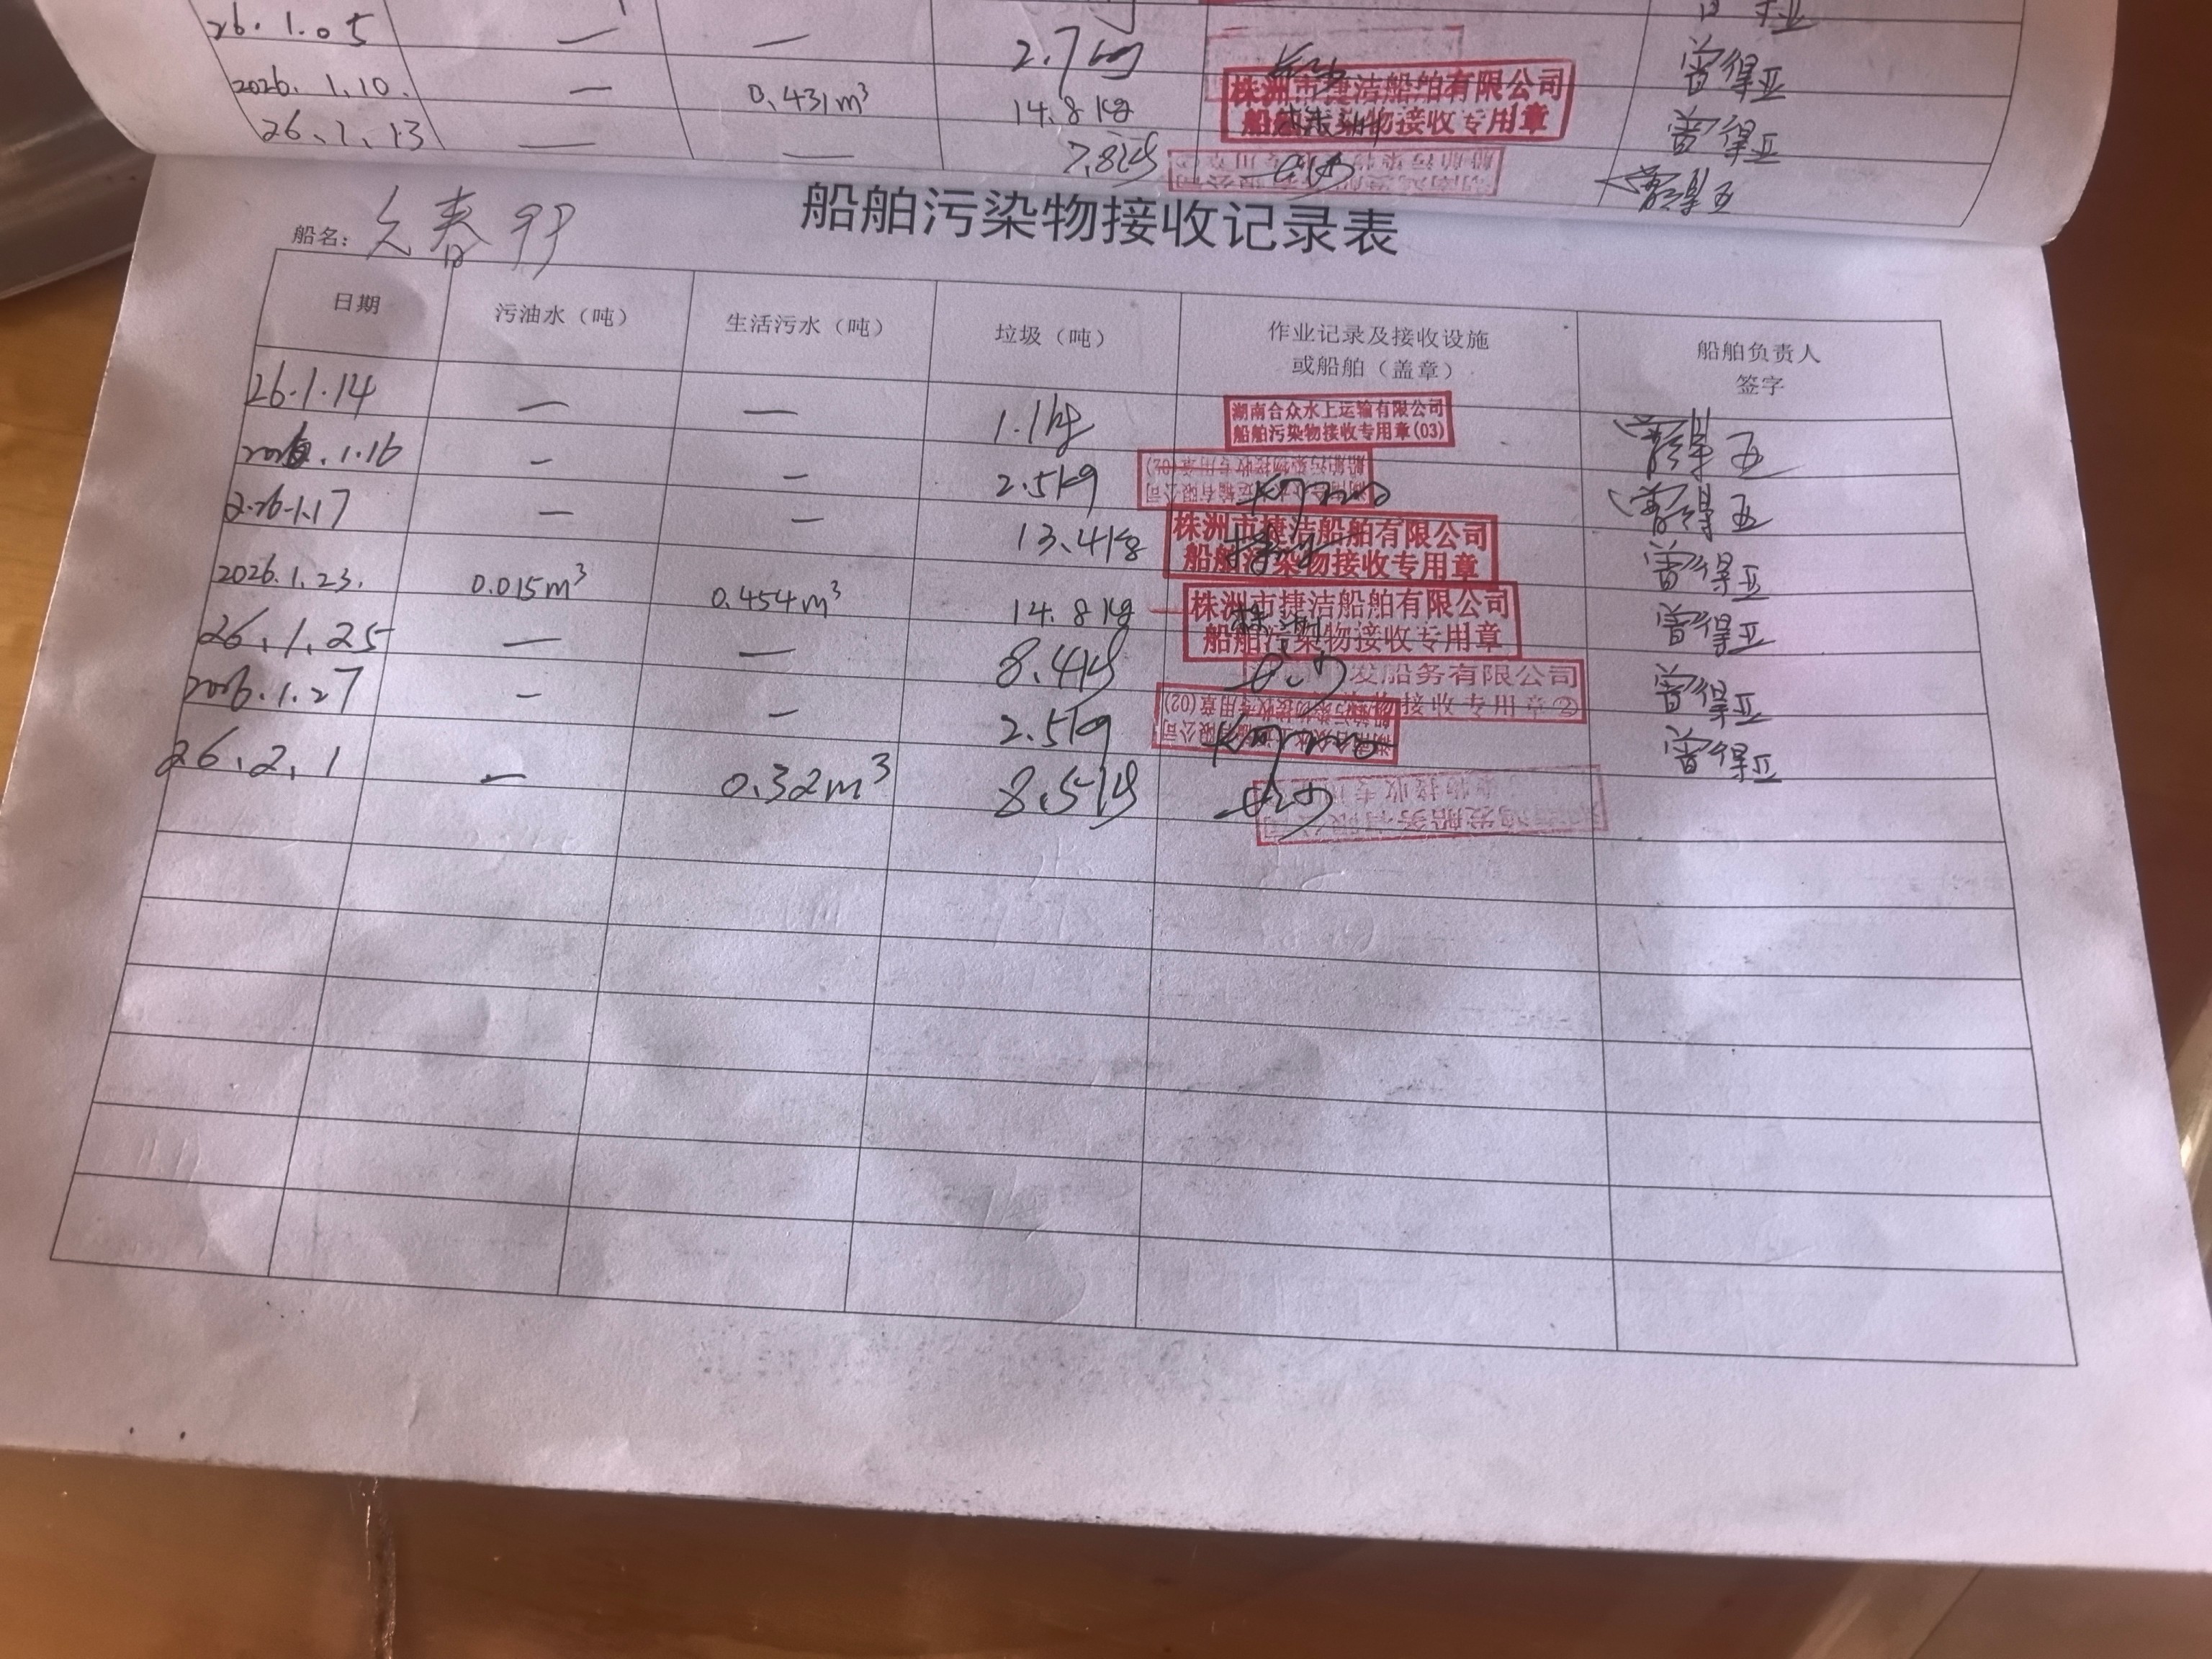 26.1.05 — — 2.7kg 曾得亚
2026.1.10. — 0.431m³ 14.8kg 株洲市捷洁船舶有限公司 曾得亚
船舶污染物接收专用章
26.1.13 — — 7.8kg 长沙 曾得亚
船舶污染物接收记录表
船名: 99
日期 污油水（吨） 生活污水（吨） 垃圾（吨） 作业记录及接收设施 船舶负责人
或船舶（盖章） 签字
26.1.14 — — 1.1kg 湖南合众水上运输有限公司 曾得亚
船舶污染物接收专用章(03)
2026.1.16 — — 2.5kg 船舶污染物接收专用章(02) 曾得亚
湖南合众水上运输有限公司
2026.1.17 — — 13.4kg 株洲市捷洁船舶有限公司 曾得亚
船舶污染物接收专用章
2026.1.23. 0.015m³ 0.454m³ 14.8kg 株洲市捷洁船舶有限公司 曾得亚
船舶污染物接收专用章 株洲
26.1.25 — — 8.4kg 长沙 发船务有限公司 曾得亚
物接收专用章②
2026.1.27 — — 2.5kg 船舶污染物接收专用章(02) 曾得亚
26.2.1 — 0.32m³ 8.5kg 长沙